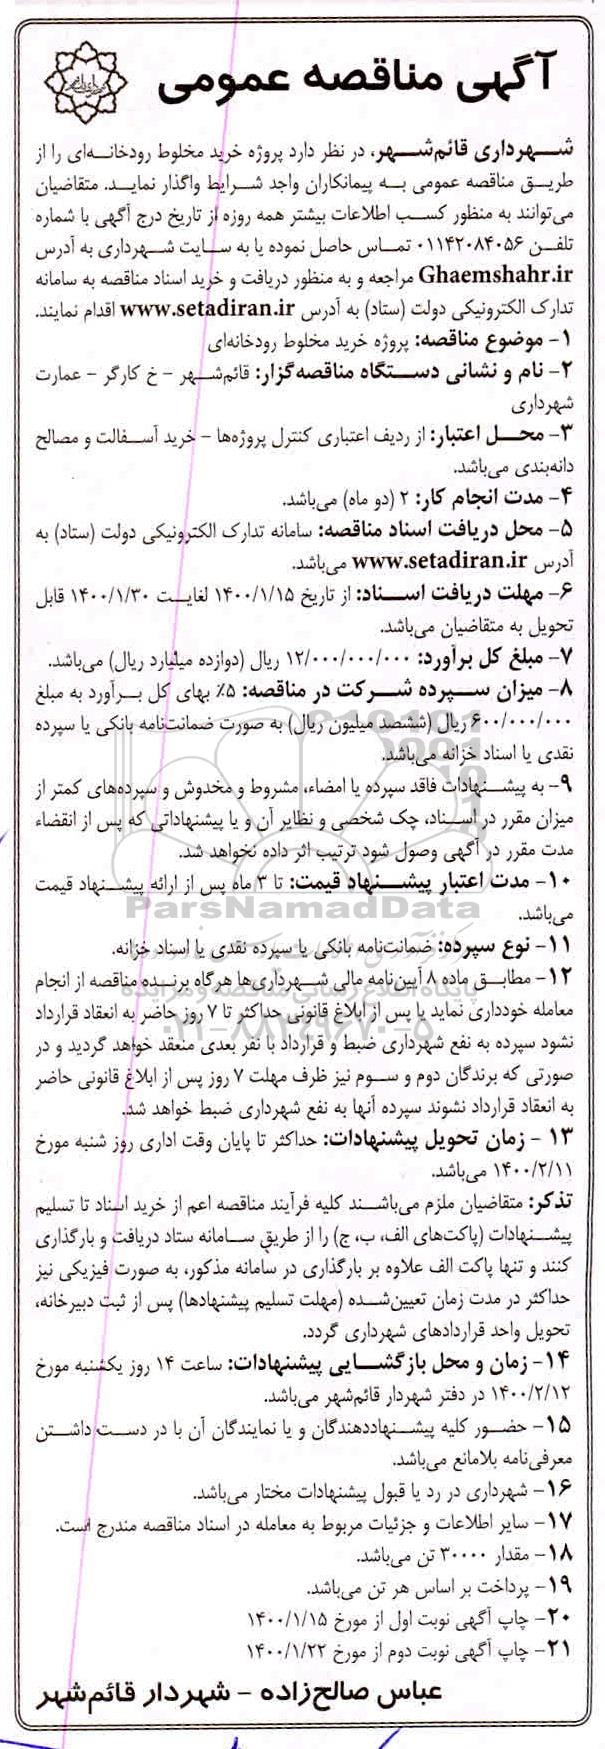 آگهی مناقصه عمومی
شهرداری قائم‌شهر، در نظر دارد پروژه خرید مخلوط رودخانه‌ای را از
طریق مناقصه عمومی به پیمانکاران واجد شرایط واگذار نماید. متقاضیان
می‌توانند به منظور کسب اطلاعات بیشتر همه روزه از تاریخ درج آگهی با شماره
تلفن ۰۱۱۴۲۰۸۴۰۵۶ تماس حاصل نموده یا به سایت شهرداری به آدرس
Ghaemshahr.ir مراجعه و به منظور دریافت و خرید اسناد مناقصه به سامانه
تدارک الکترونیکی دولت (ستاد) به آدرس www.setadiran.ir اقدام نمایند.
۱- موضوع مناقصه: پروژه خرید مخلوط رودخانه‌ای
۲- نام و نشانی دستگاه مناقصه‌گزار: قائم‌شهر - خ کارگر - عمارت
شهرداری
۳- محل اعتبار: از ردیف اعتباری کنترل پروژه‌ها - خرید آسفالت و مصالح
دانه‌بندی می‌باشد.
۴- مدت انجام کار: ۲ (دو ماه) می‌باشد.
۵- محل دریافت اسناد مناقصه: سامانه تدارک الکترونیکی دولت (ستاد) به
آدرس www.setadiran.ir می‌باشد.
۶- مهلت دریافت اسناد: از تاریخ ۱۴۰۰/۱/۱۵ لغایت ۱۴۰۰/۱/۳۰ قابل
تحویل به متقاضیان می‌باشد.
۷- مبلغ کل برآورد: ۱۲/۰۰۰/۰۰۰/۰۰۰ ریال (دوازده میلیارد ریال) می‌باشد.
۸- میزان سپرده شرکت در مناقصه: ۵٪ بهای کل برآورد به مبلغ
۶۰۰/۰۰۰/۰۰۰ ریال (ششصد میلیون ریال) به صورت ضمانت‌نامه بانکی یا سپرده
نقدی یا اسناد خزانه می‌باشد.
۹- به پیشنهادات فاقد سپرده یا امضاء، مشروط و مخدوش و سپرده‌های کمتر از
میزان مقرر در اسناد، چک شخصی و نظایر آن و یا پیشنهاداتی که پس از انقضاء
مدت مقرر در آگهی وصول شود ترتیب اثر داده نخواهد شد.
۱۰- مدت اعتبار پیشنهاد قیمت: تا ۳ ماه پس از ارائه پیشنهاد قیمت
می‌باشد.
ParsNamadData
۱۱- نوع سپرده: ضمانت‌نامه بانکی یا سپرده نقدی یا اسناد خزانه.
۱۲- مطابق ماده ۸ آیین‌نامه مالی شهرداری‌ها هرگاه برنده مناقصه از انجام
معامله خودداری نماید یا پس از ابلاغ قانونی حداکثر تا ۷ روز حاضر به انعقاد قرارداد
نشود سپرده به نفع شهرداری ضبط و قرارداد با نفر بعدی منعقد خواهد گردید و در
صورتی که برندگان دوم و سوم نیز ظرف مهلت ۷ روز پس از ابلاغ قانونی حاضر
به انعقاد قرارداد نشوند سپرده آنها به نفع شهرداری ضبط خواهد شد.
۱۳ - زمان تحویل پیشنهادات: حداکثر تا پایان وقت اداری روز شنبه مورخ
۱۴۰۰/۲/۱۱ می‌باشد.
تذکر: متقاضیان ملزم می‌باشند کلیه فرآیند مناقصه اعم از خرید اسناد تا تسلیم
پیشنهادات (پاکت‌های الف، ب، ج) را از طریق سامانه ستاد دریافت و بارگذاری
کنند و تنها پاکت الف علاوه بر بارگذاری در سامانه مذکور، به صورت فیزیکی نیز
حداکثر در مدت زمان تعیین‌شده (مهلت تسلیم پیشنهادها) پس از ثبت دبیرخانه،
تحویل واحد قراردادهای شهرداری گردد.
۱۴- زمان و محل بازگشایی پیشنهادات: ساعت ۱۴ روز یکشنبه مورخ
۱۴۰۰/۲/۱۲ در دفتر شهردار قائم‌شهر می‌باشد.
۱۵- حضور کلیه پیشنهاددهندگان و یا نمایندگان آن با در دست داشتن
معرفی‌نامه بلامانع می‌باشد.
۱۶- شهرداری در رد یا قبول پیشنهادات مختار می‌باشد.
۱۷- سایر اطلاعات و جزئیات مربوط به معامله در اسناد مناقصه مندرج است.
۱۸- مقدار ۳۰۰۰۰ تن می‌باشد.
۱۹- پرداخت بر اساس هر تن می‌باشد.
۲۰- چاپ آگهی نوبت اول از مورخ ۱۴۰۰/۱/۱۵
۲۱- چاپ آگهی نوبت دوم از مورخ ۱۴۰۰/۱/۲۲
عباس صالح‌زاده - شهردار قائم‌شهر